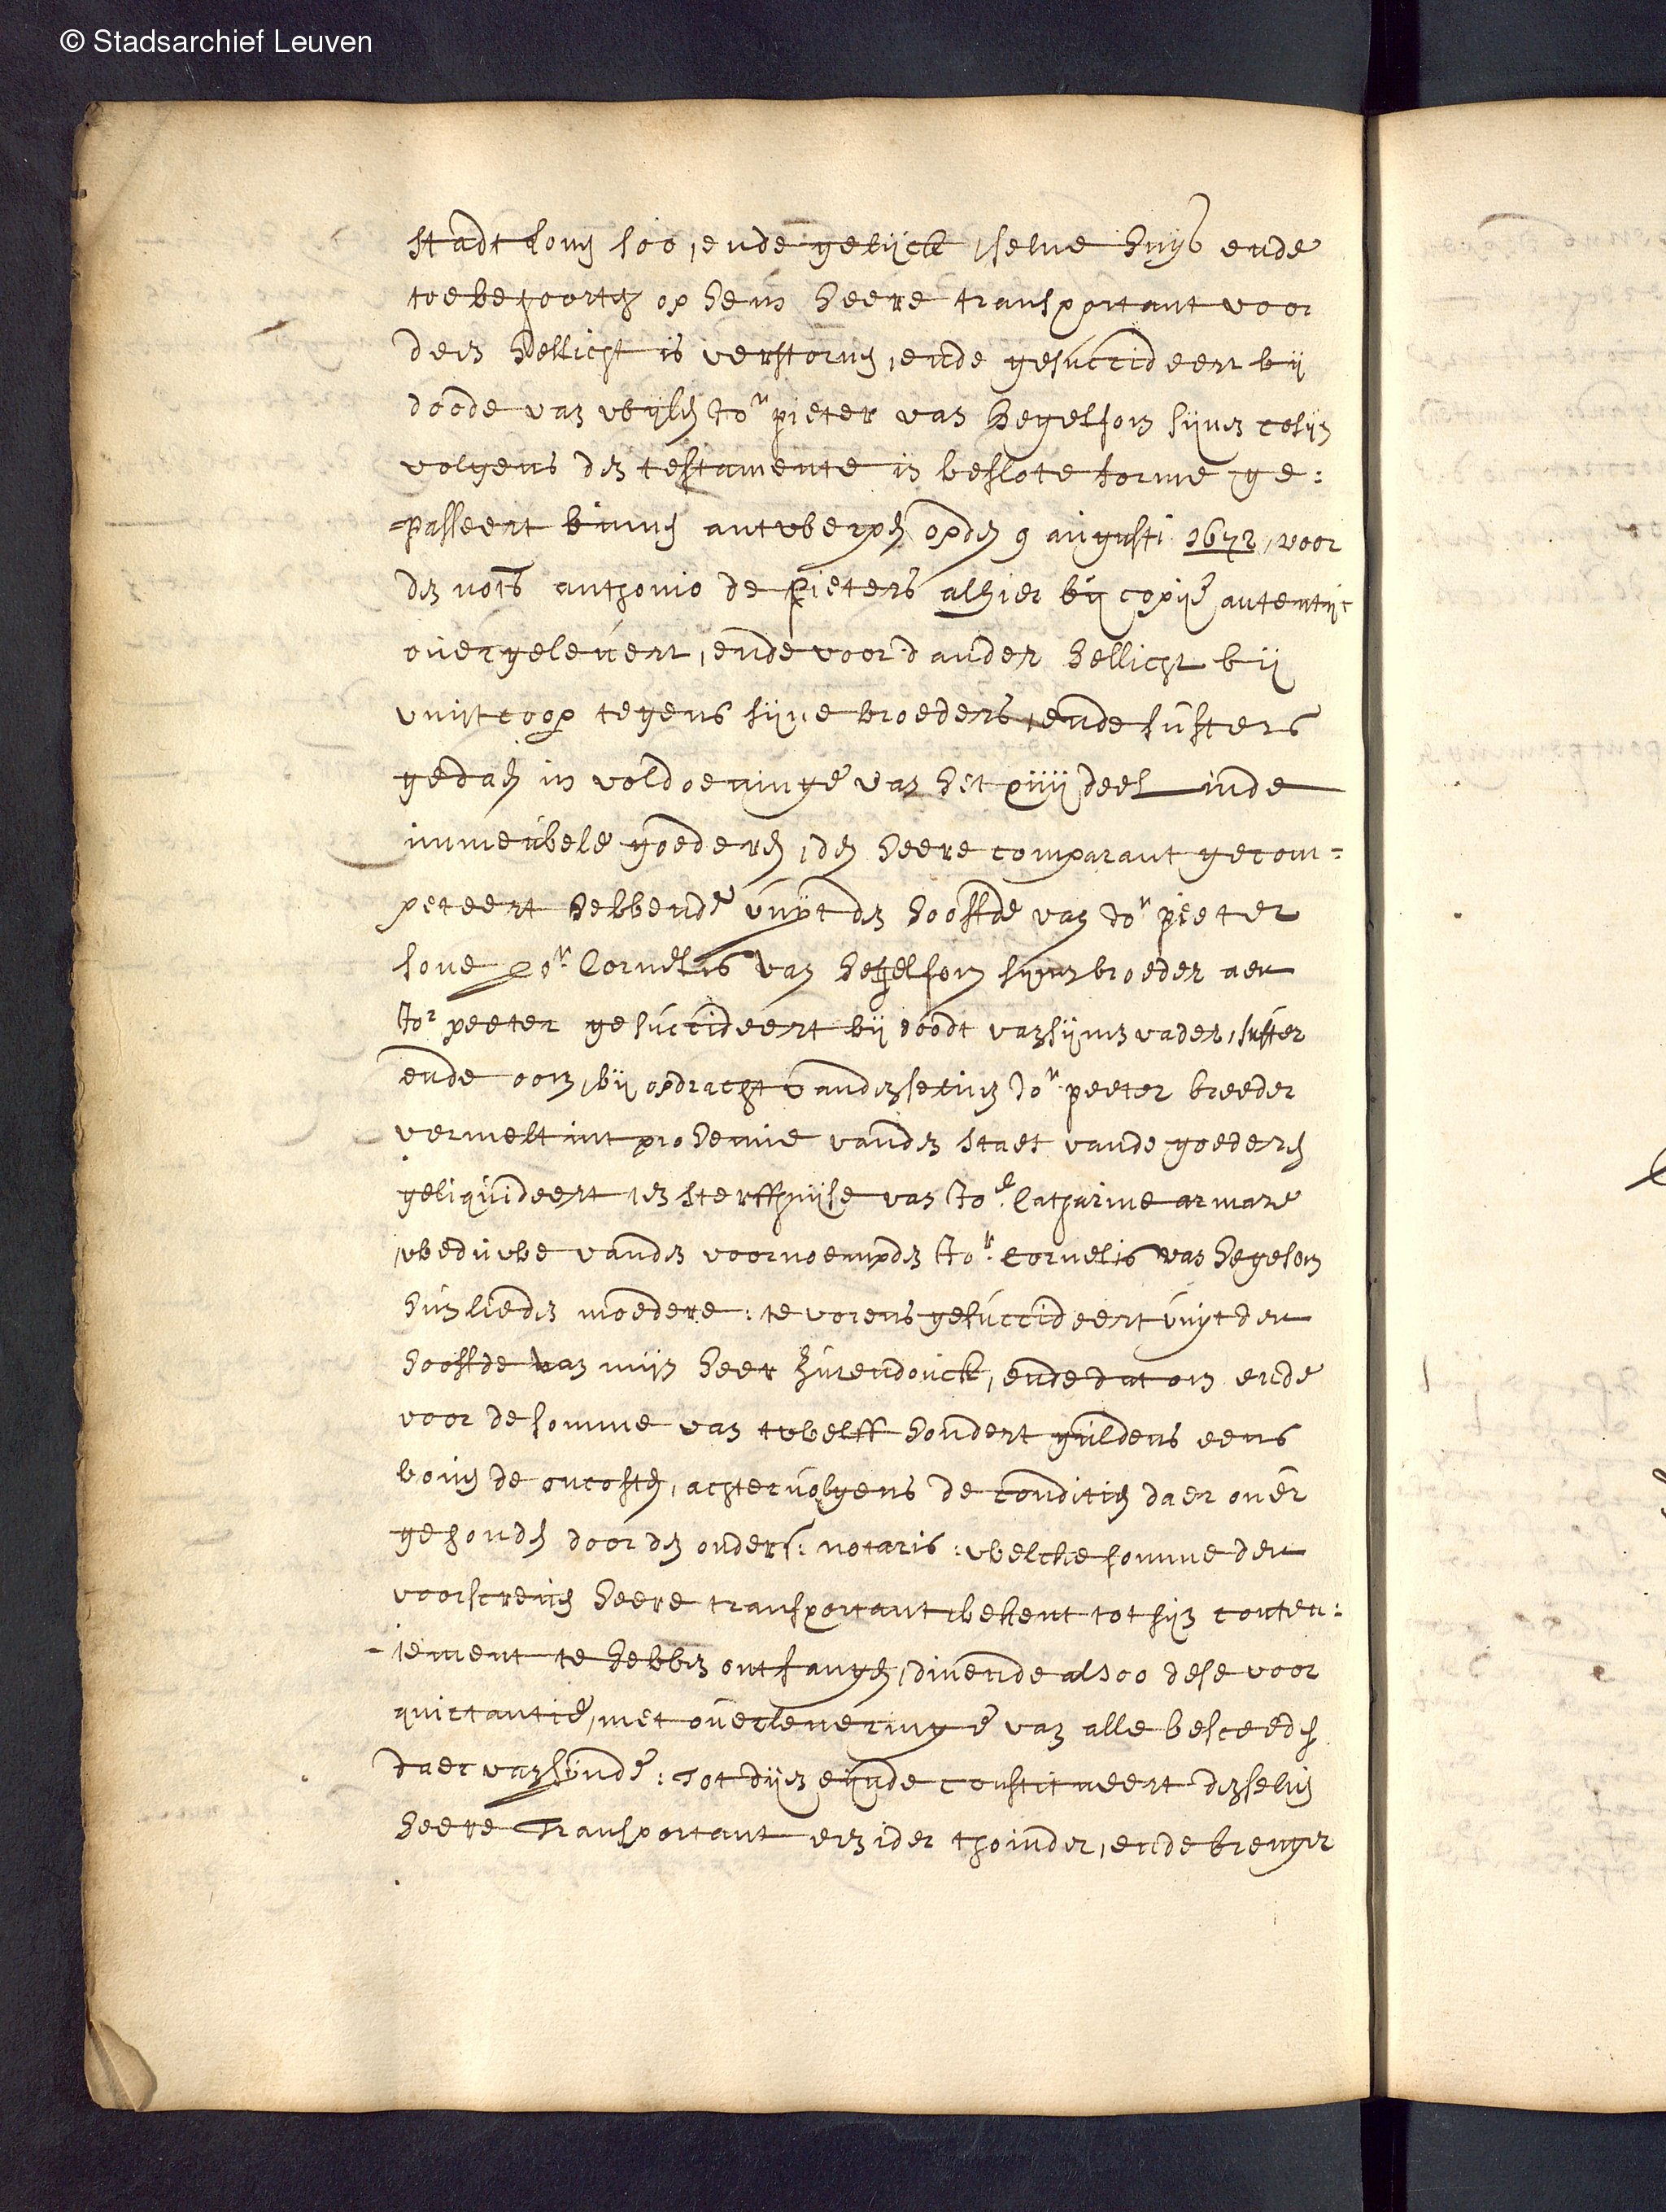 © Stadsarchief Leuven
stadt Loven soo, ende gelijck tselve huys ende
toebehoorten op hem heere transportant voor
deen hellicht is verstorven, ende gesuccideert bij
doode van wijlen Jor pieter van hegelsom sijnen cosijn
volgens den testamente in beslote forme ge:
=passeert binnen antwerpen opden 9 augusti 1672, voor
den nots anthonio de pieters alhier bij copije autentijc
overgelevert, ende voor d'ander hellicht bij
vuijtcoop tegens sijne broeders, ende susters
gedaen in voldoeninge van het xiiij deel inde
immeubele goederen, den heere comparant gecom=
peteert hebbende vuijt den hooffde van Jor pieter
sone Jor Cornelis van hegelsom sijnen broeder aen
Jor peeter gesuccideert bij doodt van sijnen vader, suster
ende oom, bij opdracht vanden selven Jor peeter breeder
vermelt int prohemie vanden staet vande goederen
geliquideert ten sterffhuijse van Joe Catharine armare
weduwe vanden voornoempden Jor Cornelis van hegelsom
hunlieden moedere: te vorens gesuccideert vuijt den
hooffde van mijn heer Zurendonck, ende dat om ende
voor de somme van twelff hondert guldens eens
boven de oncosten, achtervolgens de conditien daer over
gehouden door den onders: notaris: welcke somme den
voorscreven heere transportant bekent tot sijn conten:
-tement te hebben ontfangen, dinende alsoo dese voor
quictantie, met overleveringe van alle bescheeden
daer van sijnde: Tot dijen eijnde constitueert den selven
heere Transportant een ider thoinder, ende brenger